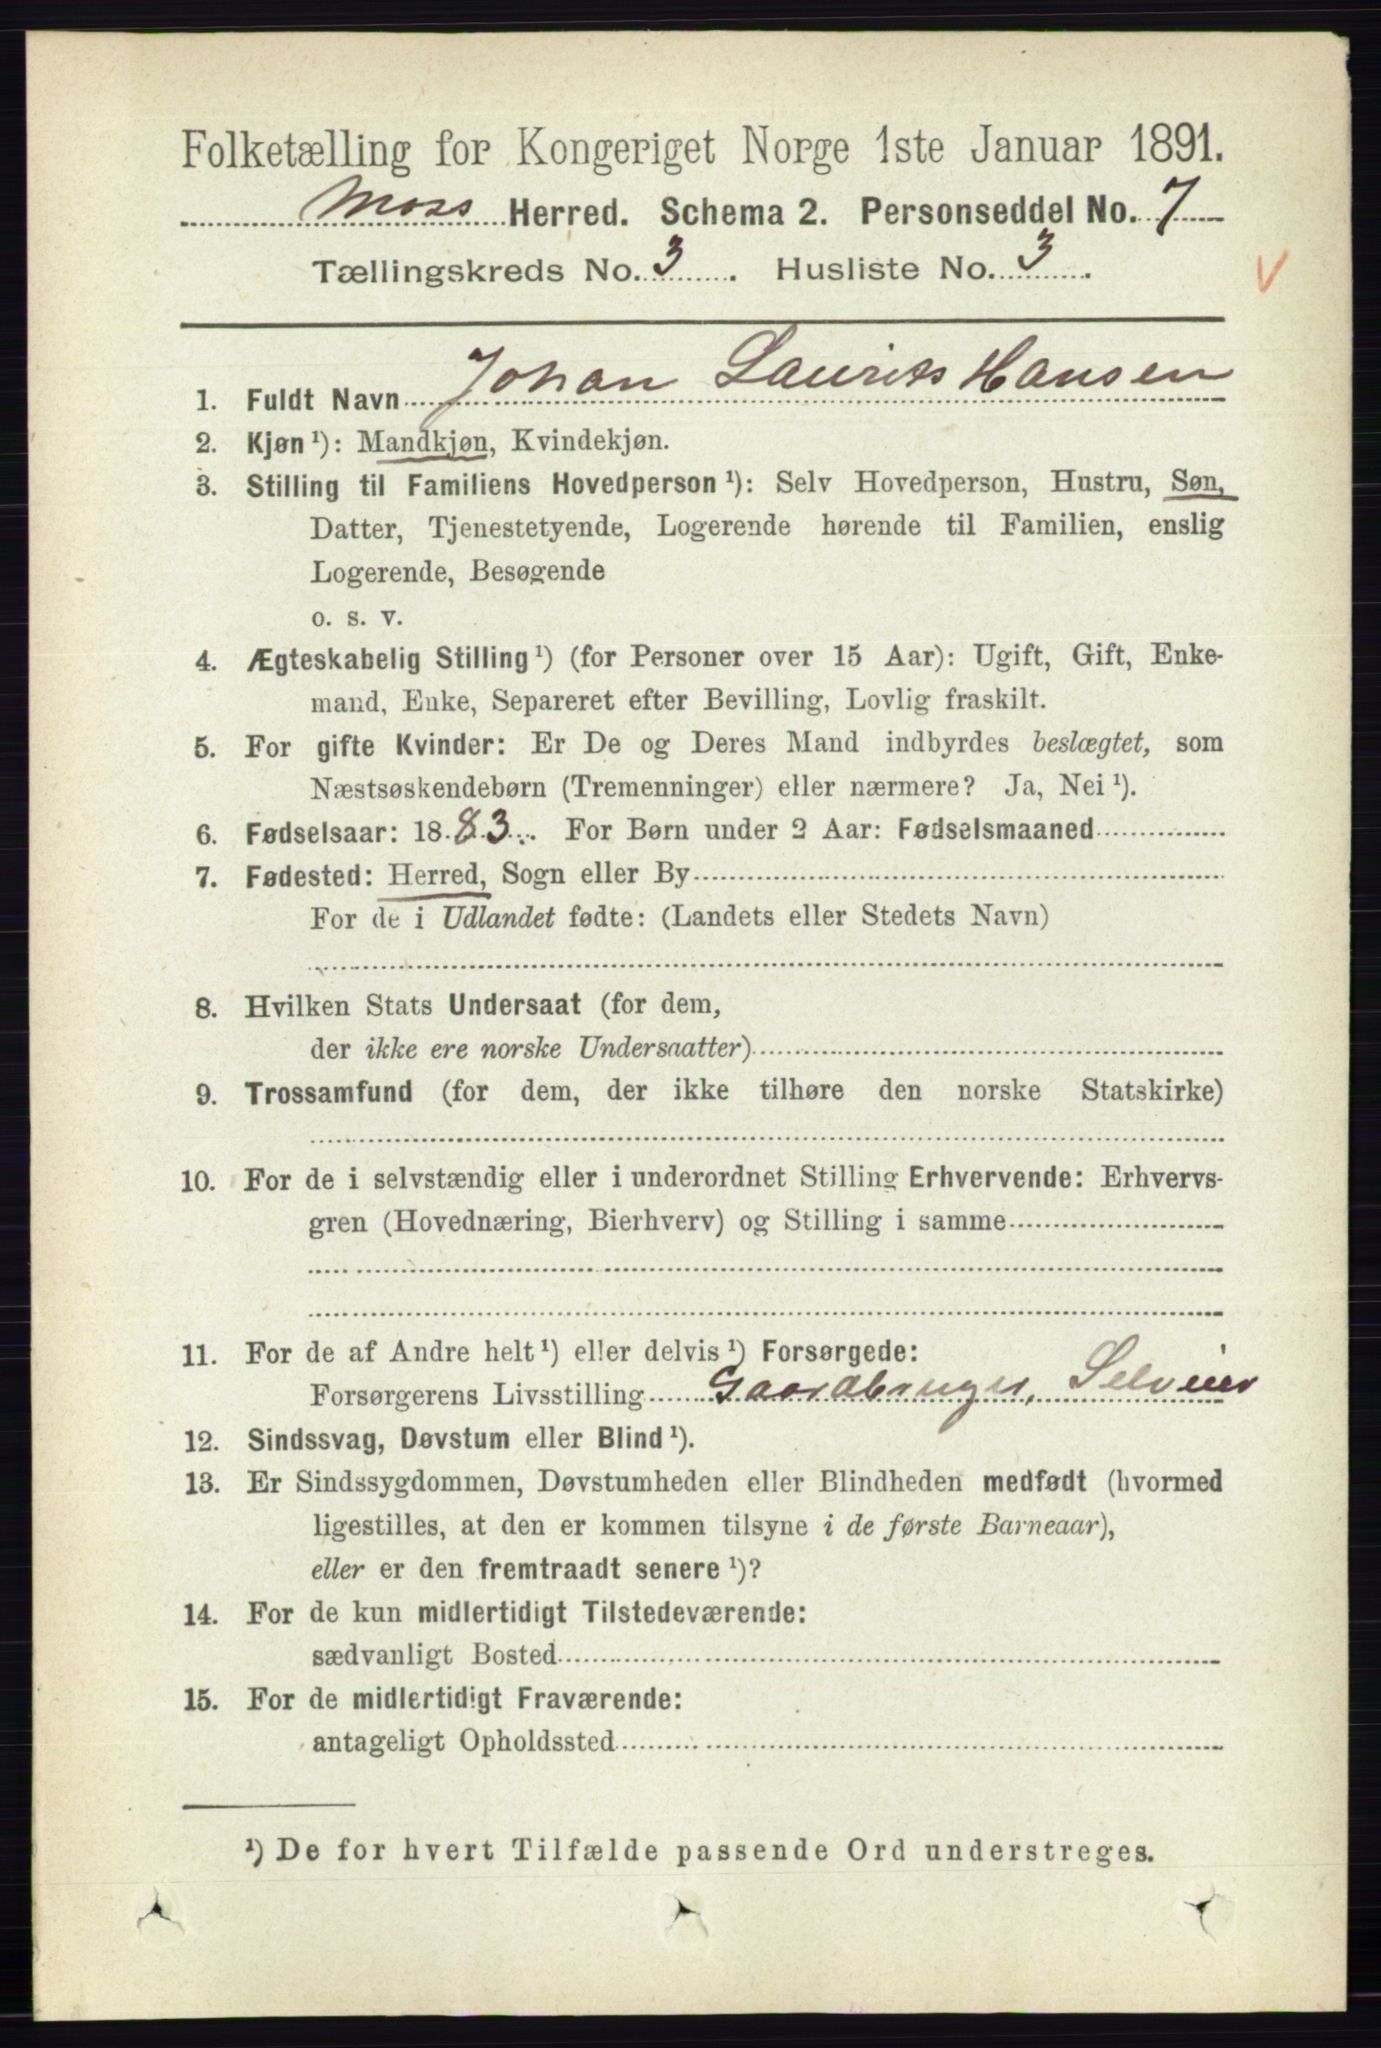 Folketælling for Kongeriget Norge 1ste Januar 1891.
Moss Herred. Schema 2. Personseddel No. 7
Tællingskreds No. 3. Husliste No. 3.
V
1. Fuldt Navn Johan Laurits Hansen
2. Kjøn ¹): Mandkjøn, Kvindekjøn.
3. Stilling til Familiens Hovedperson ¹): Selv Hovedperson, Hustru, Søn,
Datter, Tjenestetyende, Logerende hørende til Familien, enslig
Logerende, Besøgende
o. s. v.
4. Ægteskabelig Stilling ¹) (for Personer over 15 Aar): Ugift, Gift, Enke-
mand, Enke, Separeret efter Bevilling, Lovlig fraskilt.
5. For gifte Kvinder: Er De og Deres Mand indbyrdes beslægtet, som
Næstsøskendebørn (Tremenninger) eller nærmere? Ja, Nei ¹).
6. Fødselsaar: 1883. For Børn under 2 Aar: Fødselsmaaned
7. Fødested: Herred, Sogn eller By
For de i Udlandet fødte: (Landets eller Stedets Navn)
8. Hvilken Stats Undersaat (for dem,
der ikke ere norske Undersaatter)
9. Trossamfund (for dem, der ikke tilhøre den norske Statskirke)
10. For de i selvstændig eller i underordnet Stilling Erhvervende: Erhvervs-
gren (Hovednæring, Bierhverv) og Stilling i samme
11. For de af Andre helt ¹) eller delvis ¹) Forsørgede:
Forsørgerens Livsstilling Gaardbruger, Selveier
12. Sindssvag, Døvstum eller Blind ¹).
13. Er Sindssygdommen, Døvstumheden eller Blindheden medfødt (hvormed
ligestilles, at den er kommen tilsyne i de første Barneaar),
eller er den fremtraadt senere ¹)?
14. For de kun midlertidigt Tilstedeværende:
sædvanligt Bosted
15. For de midlertidigt Fraværende:
antageligt Opholdssted
¹) De for hvert Tilfælde passende Ord understreges.